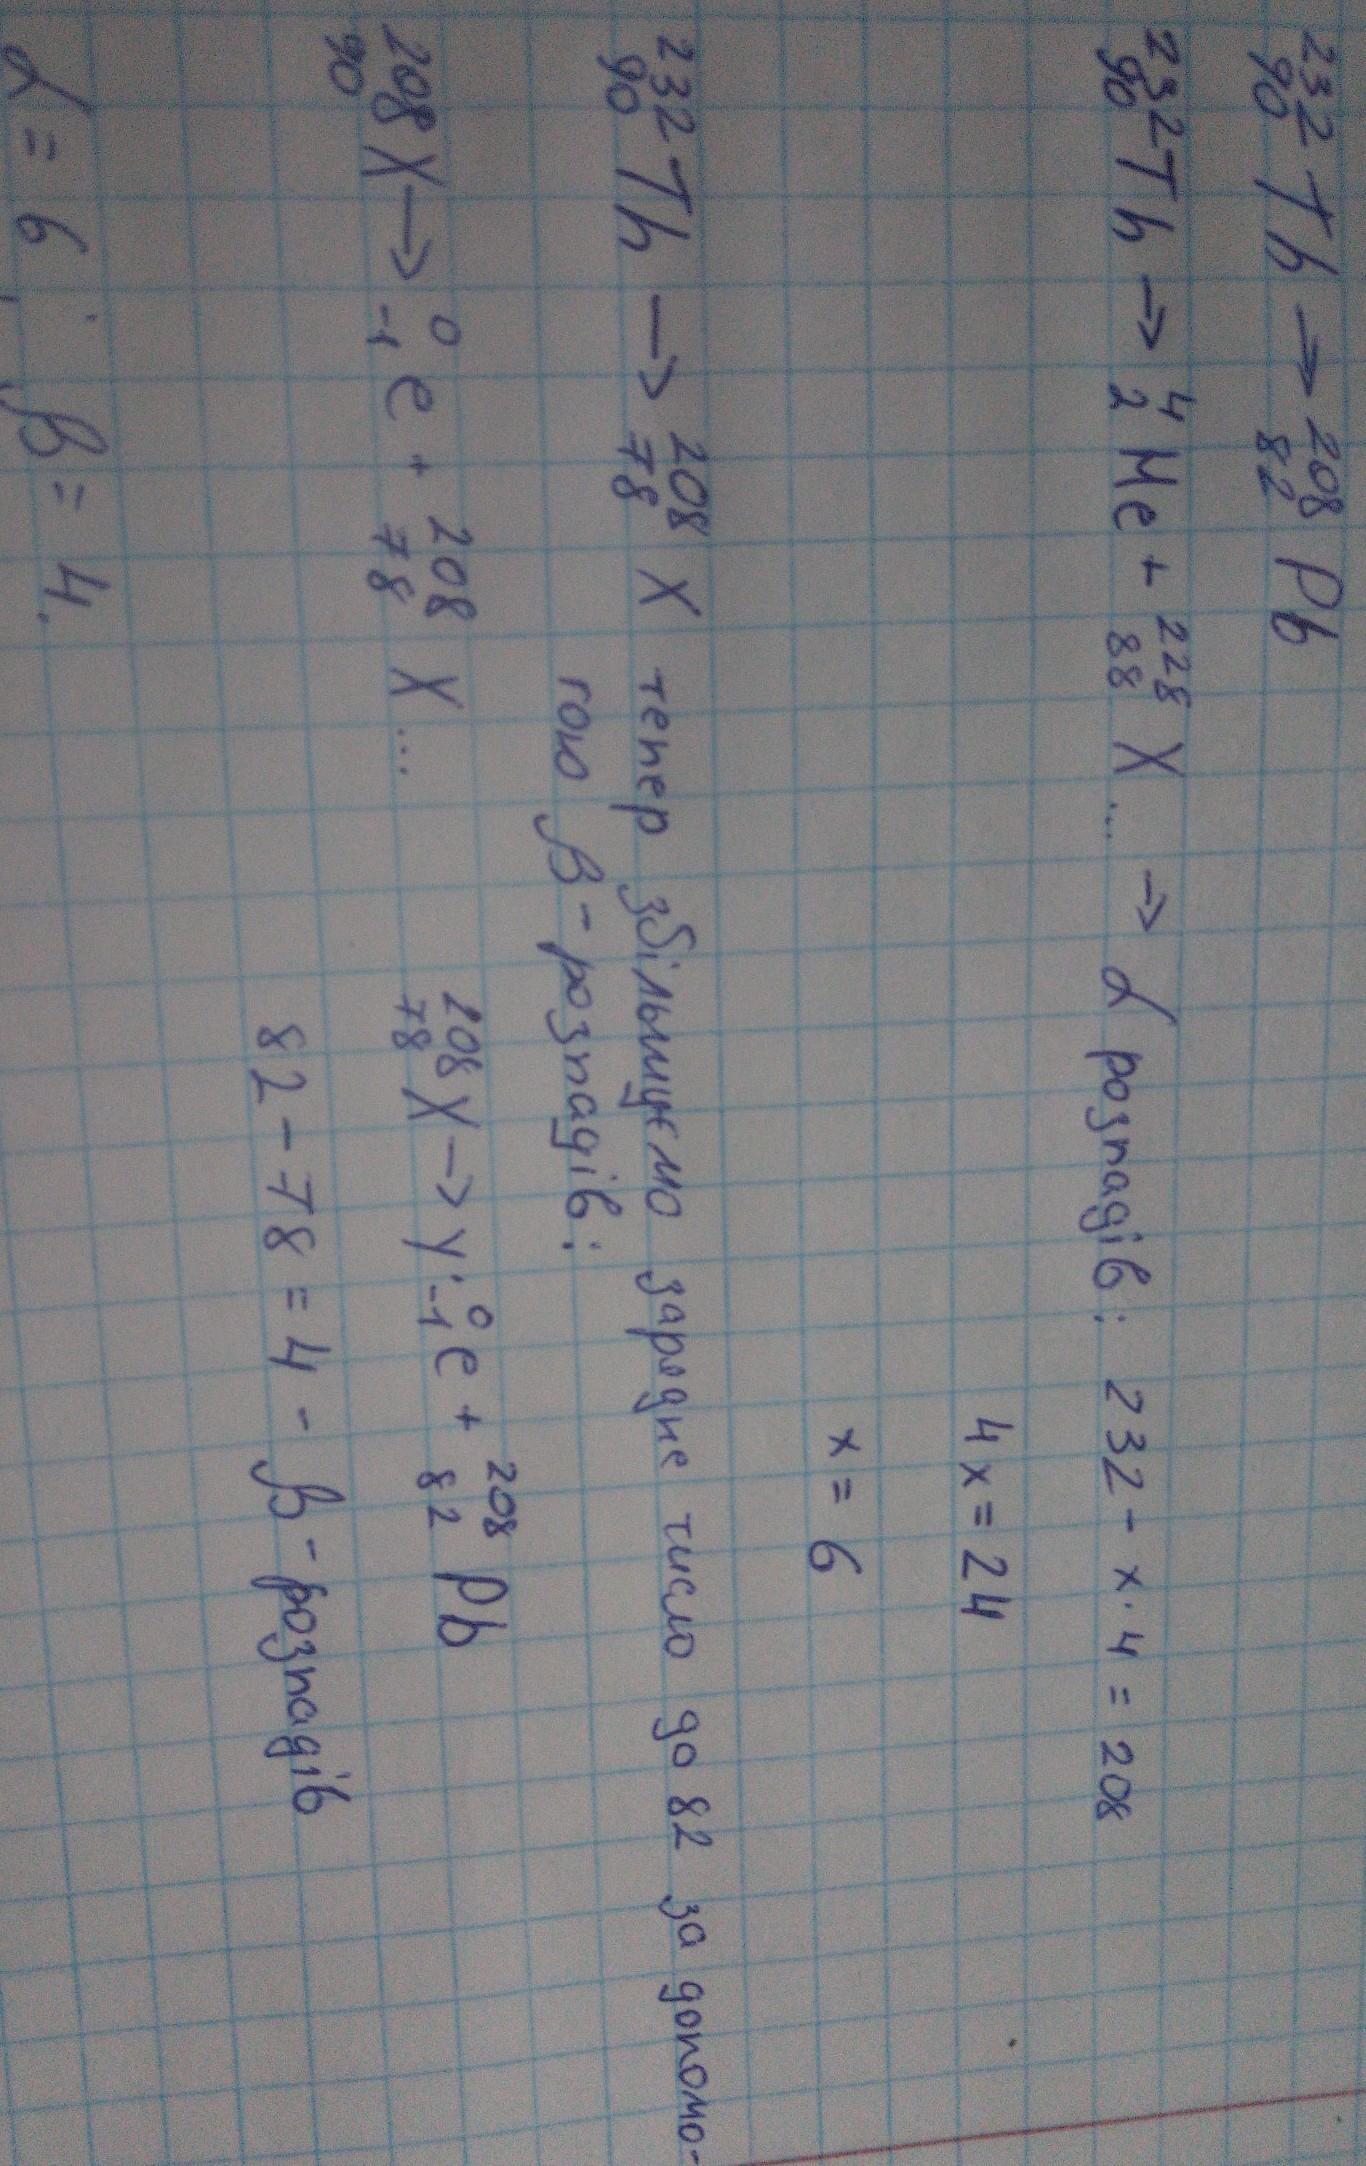 ²³²₉₀Th → ²⁰⁸₈₂Pb
²³²₉₀Th → ⁴₂Me + ²²⁸₈₈X ... → α розпадів: 232 - x · 4 = 208
4x = 24
x = 6
²³²₉₀Th → ²⁰⁸₇₈X тепер збільшуємо зарядне число до 82 за допомо-
гою β-розпадів:
²⁰⁸₉₀X → ⁰₋₁e + ²⁰⁸₇₈X ... ²⁰⁸₇₈X → Y · ⁰₋₁e + ²⁰⁸₈₂Pb
82 - 78 = 4 - β-розпадів
α = 6; β = 4.